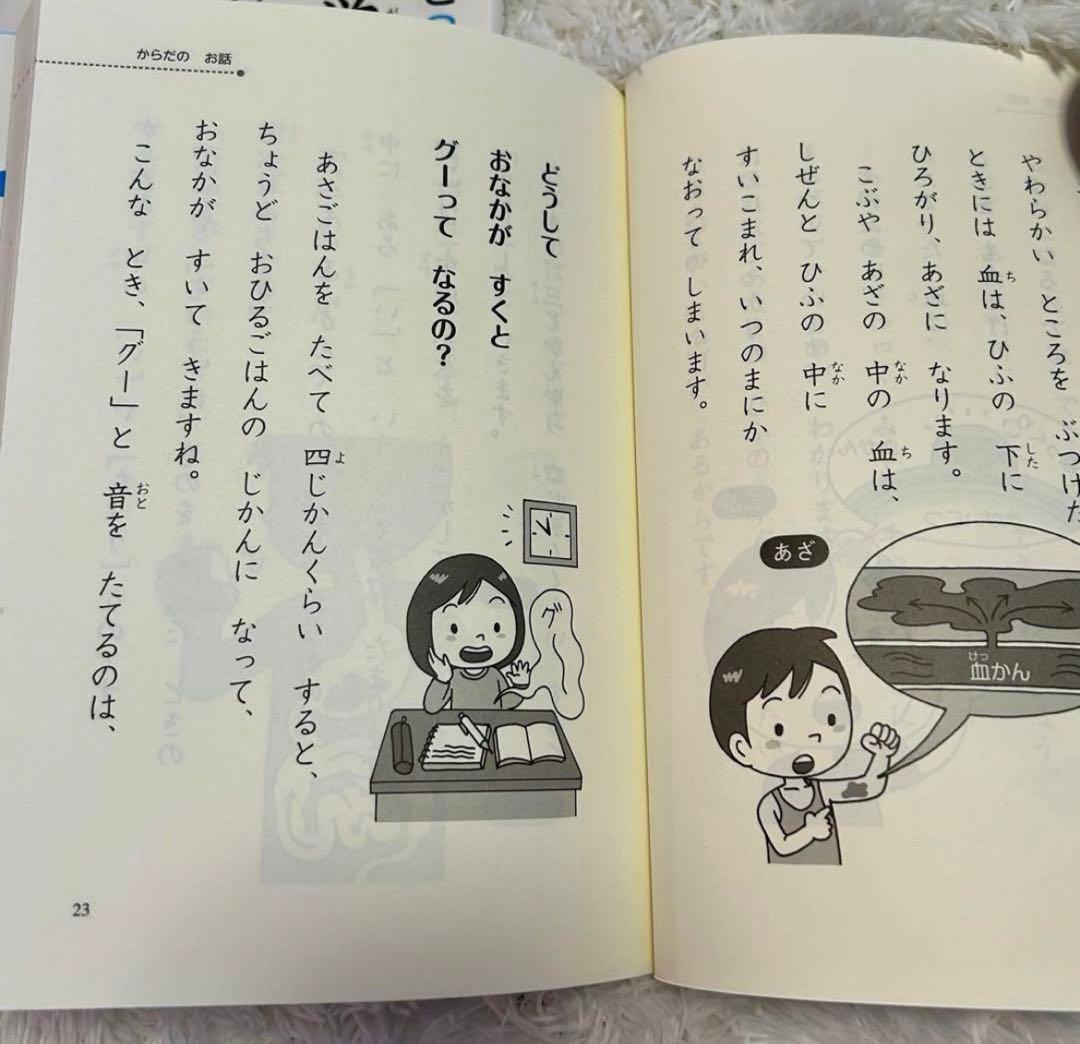 やわらかい ところを ぶつけた
ときには 血は、ひふの 下に
ひろがり、あざに なります。
こぶや あざの 中の 血は、
しぜんと ひふの 中に
すいこまれ、いつのまにか
なおって しまいます。
あざ
血かん
からだの お話
どうして
おなかが すくと
グーって なるの?
あさごはんを たべて 四じかんくらい すると、
ちょうど おひるごはんの じかんに なって、
おなかが すいて きますね。
こんな とき、「グー」と 音を たてるのは、
グ〜
23